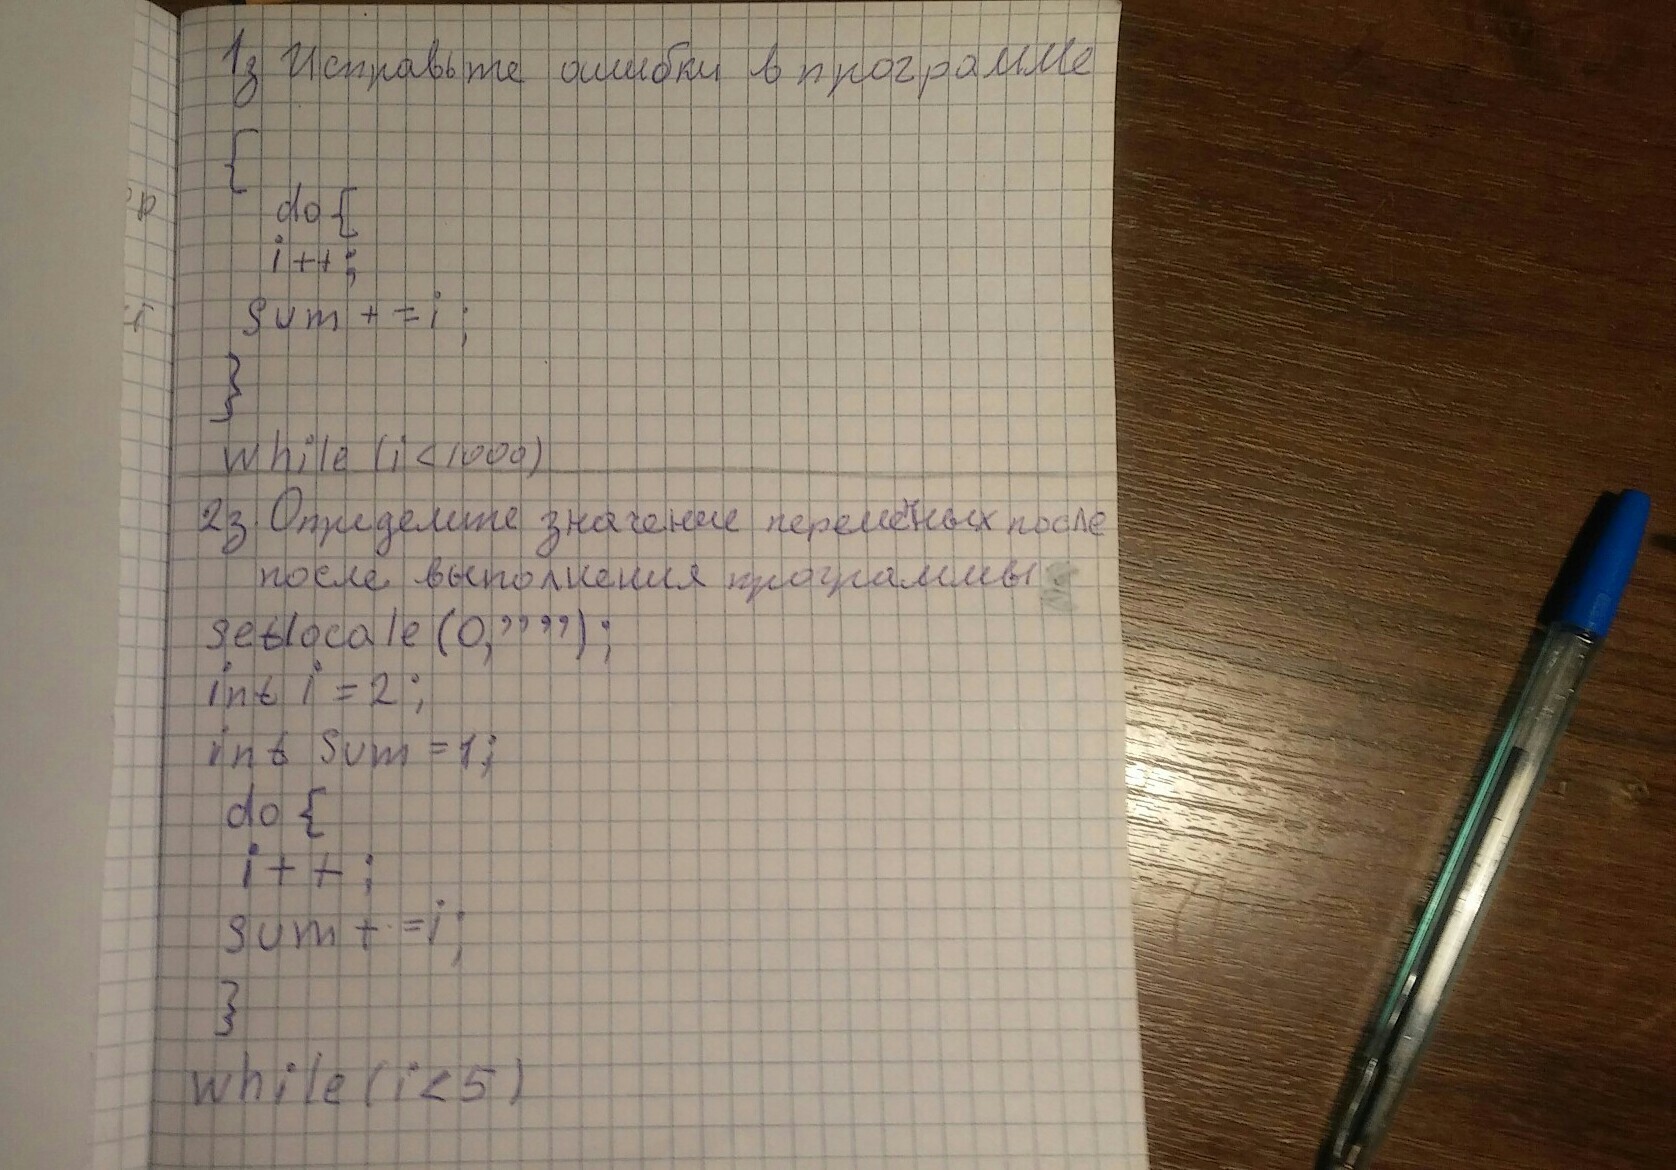 1з Исправьте ошибки в программе
{
do {
i++;
sum + = i;
}
while (i < 1000)
2з Определите значение переменных после
после выполнения программы
setlocale (0, ””);
int i = 2;
int sum = 1;
do {
i + + ;
sum + = i;
}
while (i < 5)